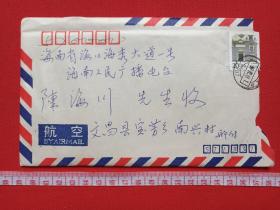 海南省海口海秀大道一号
海南人民广播电台
陳海川 先生收
航空
BY AIR MAIL
文昌县宝芳乡南兴村